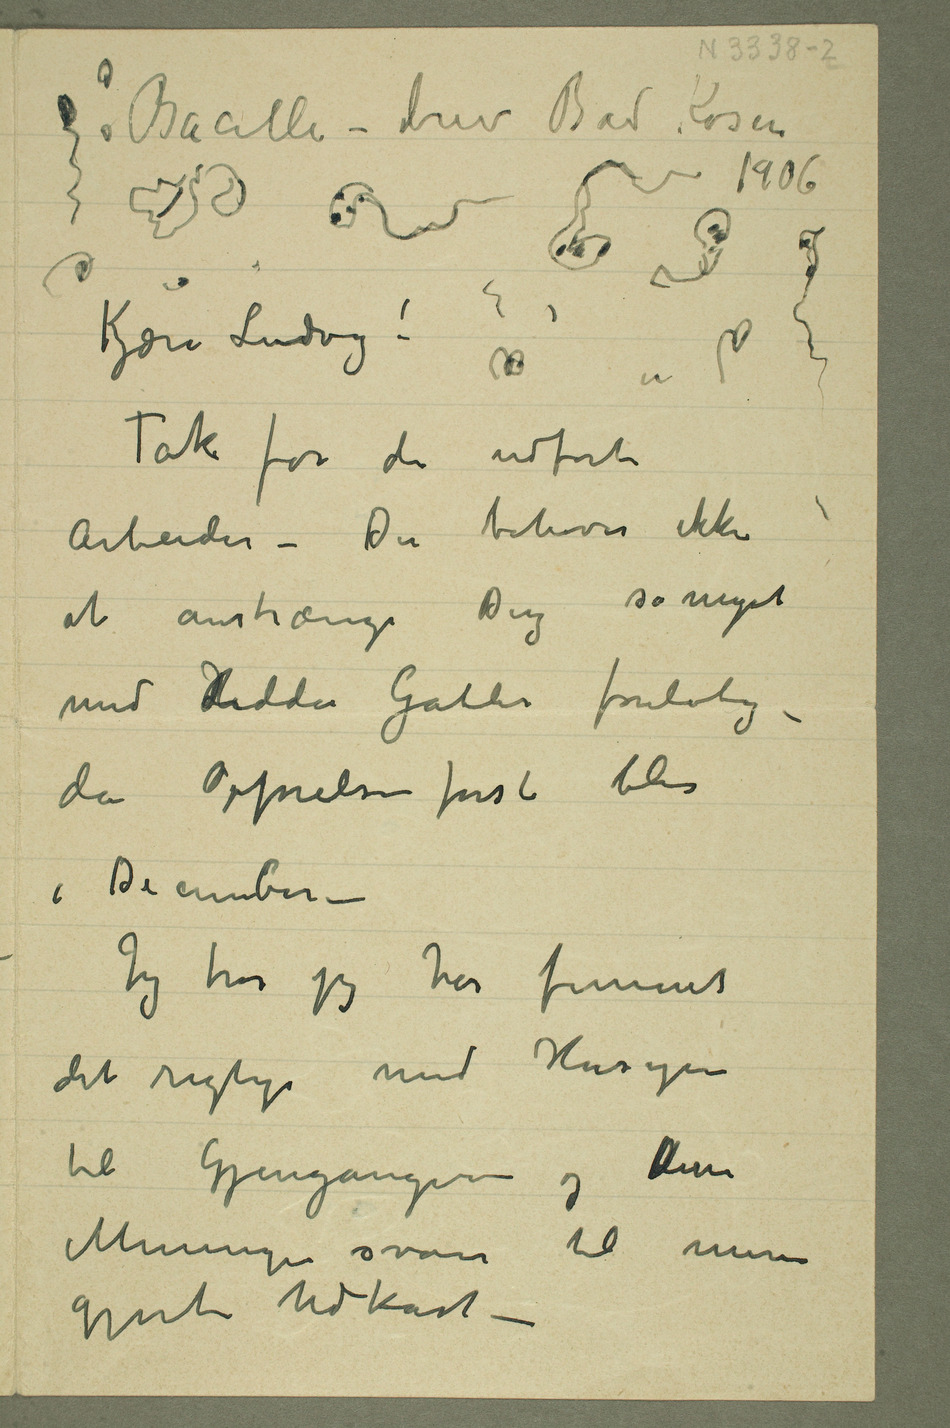 N 3338-2
Bacille – brev Bad Kösen
1906
Kjære Ludvig!
Tak for de udførte
Arbeider – Du behøver ikke
at anstrænge Dig så meget
med Hedda Gabler foreløbig –
da Opførelsen først blir
i December –
Jeg tror jeg har funnet
det rigtige med Hensyn
til Gjengangere og Dine
Meninger svarer til mine
gjorte Udkast –